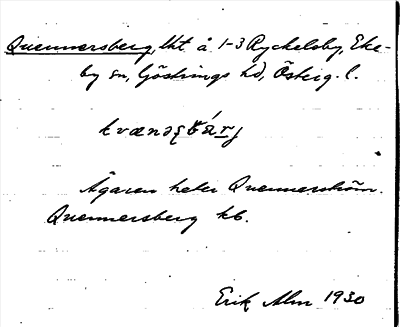 Quennersberg, lht å 1-3 Ryckelsby, Eke-
by sn, Göstrings hd, Östig. l.
Ägaren heter Quennerström.
Quennersberg kb.
Erik Alm 1930